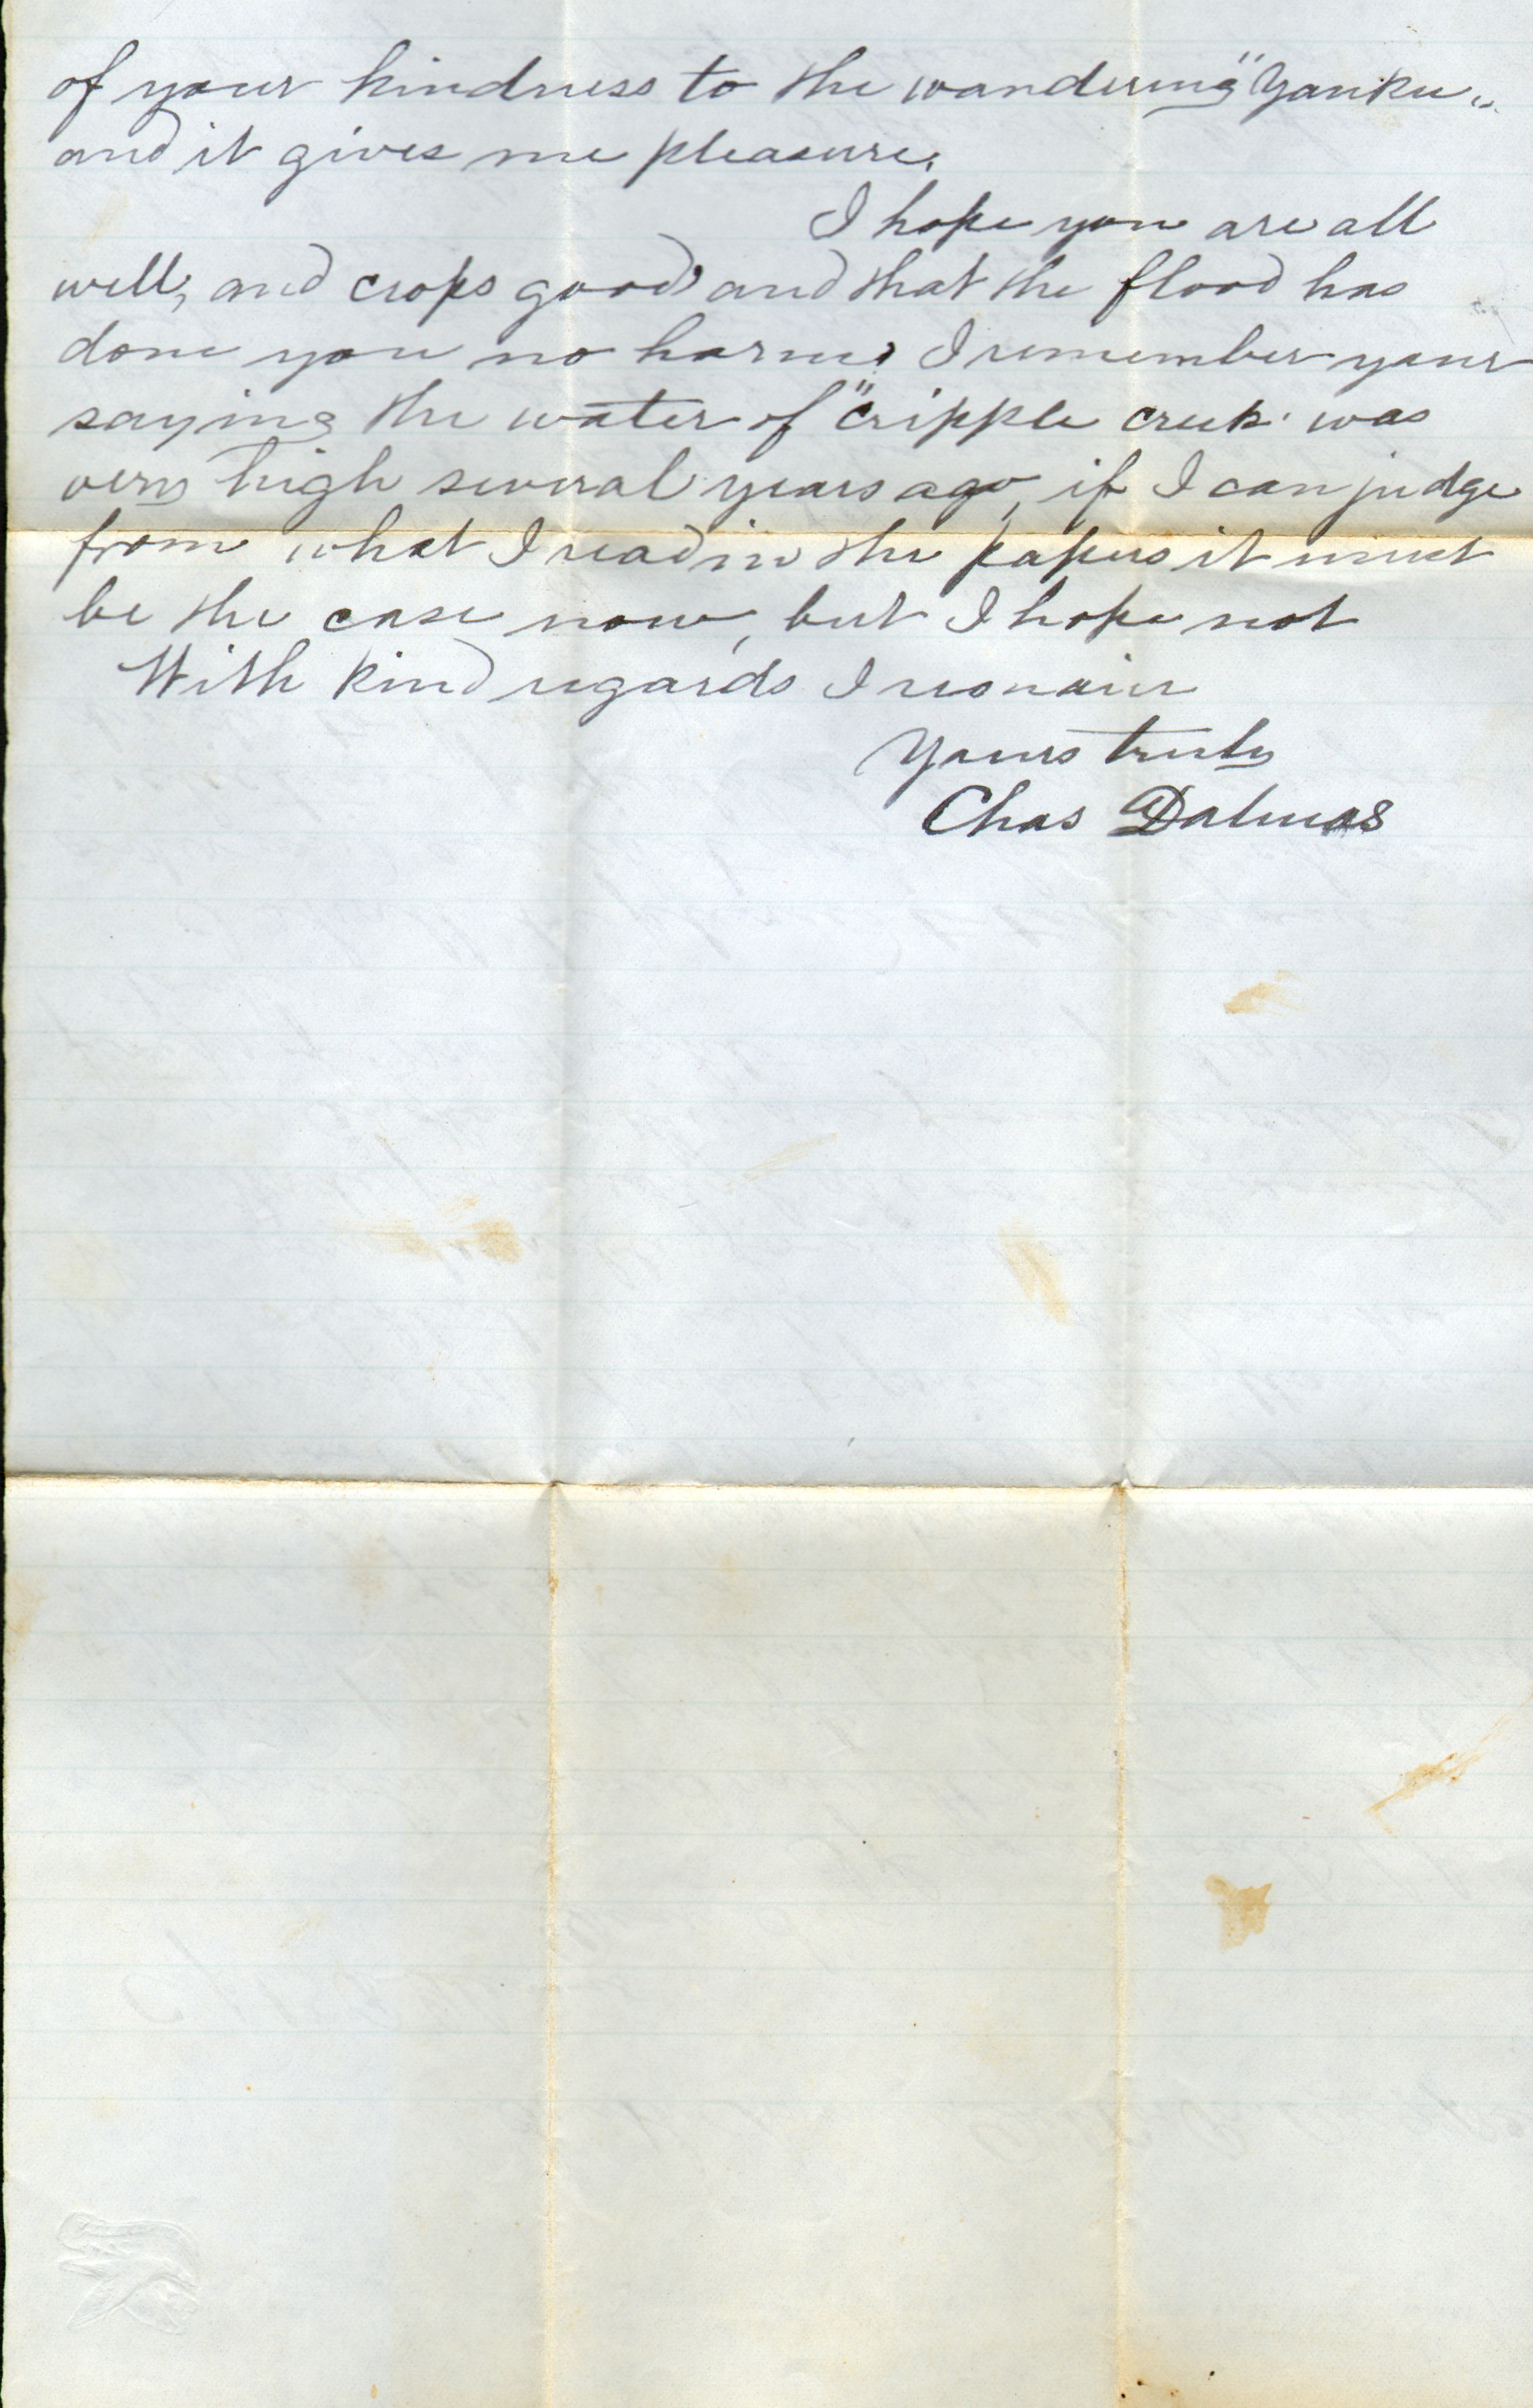 of your kindness to the wandering "Yankee"
and it gives me pleasure.
I hope you are all
well, and crops good and that the flood has
done you no harm, I remember your
saying the water of "cripple creek" was
very high several years ago, if I can judge
from what I read in the papers it must
be the case now, but I hope not
With kind regards I remain
Yours truly
Chas Dalmas